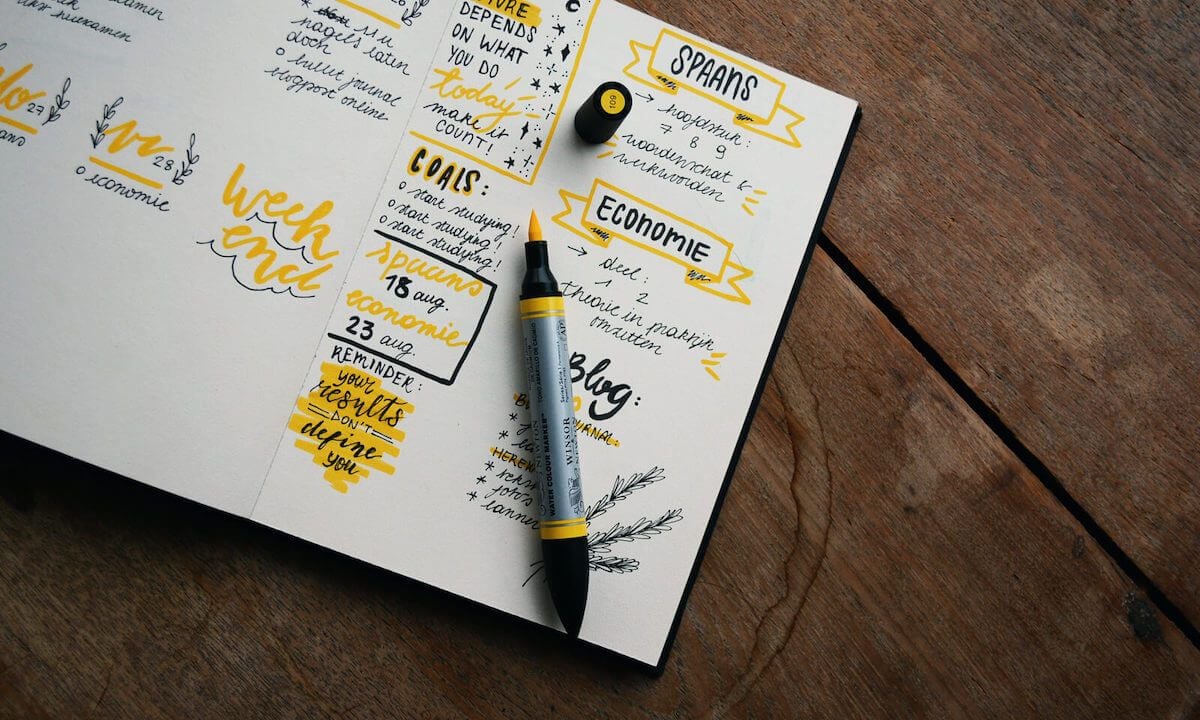 huexamen
nagels laten
doch
o bullet journal
blogpost online
27
vr 28
o economie
week
end
DEPENDS
ON WHAT
YOU DO
today
make it
COUNT!
GOALS:
o start studying!
o start studying!
o start studying!
spaans
18 aug.
economie
23 aug.
REMINDER:
your
results
DON'T
define
you
109
SPAANS
→ hoofdstuk:
7 8 9
woordenschat &
werkwoorden
ECONOMIE
→ deel:
1 2
theorie in praktijk
omzetten
Blog:
JOURNAL:
* foto's
WATER COLOUR MARKER™
WINSOR
NEWTON